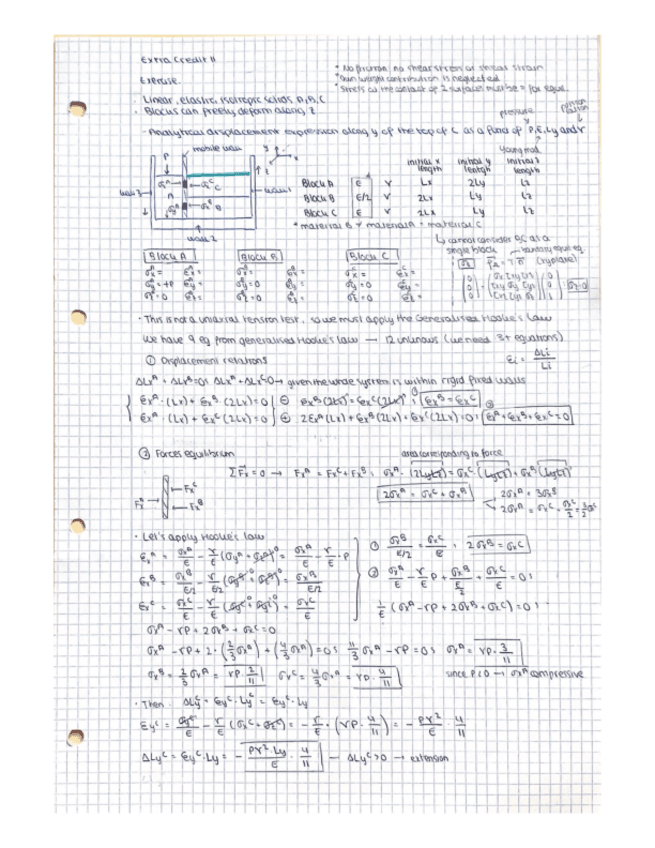 Extra Credit 11
* No friction: no shear stress or shear strain
Exercise.
* Own weight contribution is neglected
* Stress at the contact of 2 surfaces must be = for equil.
· Linear, elastic, isotropic solids A, B, C
· Blocks can freely deform along z
pressure
- Analytical displacement expression along y of the top of C as a func of P, E, Ly and r
young mod
mobile wall
initial x length
initial y length
initial z length
Block A E r Lx 2Ly Lz
Block B E/2 r 2Lx Ly Lz
Block C E r 2Lx Ly Lz
wall 3
wall 1
wall 2
* material B ≠ material A = material C
cannot consider BC as a single block
Block A
Block B
Block C
σxᴬ = εxᴬ = σxᴮ = εxᴮ = σxᶜ = εxᶜ =
σyᴬ = +P εyᴬ = σyᴮ = 0 εyᴮ = σyᶜ = 0 εyᶜ =
σzᴬ = 0 εzᴬ = σzᴮ = 0 εzᴮ = σzᶜ = 0 εzᶜ =
· This is not a uniaxial tension test, so we must apply the Generalised Hooke's Law
We have 9 eq from generalised Hooke's law → 12 unknowns (we need 3+ equations)
① Displacement relations
εi = ΔLi / Li
ΔLxᴬ + ΔLxᴮ = 0; ΔLxᴬ + ΔLxᶜ = 0 → given the whole system is within rigid fixed walls
εxᴬ · (Lx) + εxᴮ · (2Lx) = 0 ⊖ εxᴮ (2Lx) = εxᶜ (2Lx); εxᴮ = εxᶜ
εxᴬ · (Lx) + εxᶜ (2Lx) = 0 ⊕ 2εxᴬ (Lx) + εxᴮ (2Lx) + εxᶜ (2Lx) = 0; εxᴬ + εxᴮ + εxᶜ = 0
② Forces equilibrium
area corresponding to force
ΣFx = 0 → Fxᴬ = Fxᶜ + Fxᴮ; σxᴬ · (2LyLz) = σxᶜ · (LyLz) + σxᴮ (LyLz)
Fxᴬ
Fxᶜ
Fxᴮ
2σxᴬ = σxᶜ + σxᴮ
2σxᴬ = 3σxᴮ
2σxᴬ = σxᶜ + σxᶜ/2 = 3/2 σxᶜ
· Let's apply Hooke's law
εxᴬ = σxᴬ/E - r/E (σyᴬ + σzᴬ) = σxᴬ/E - r/E · P
① σxᴮ/(E/2) = σxᶜ/E; 2σxᴮ = σxᶜ
εxᴮ = σxᴮ/(E/2) - r/(E/2) (σyᴮ + σzᴮ) = σxᴮ/(E/2)
② σxᴬ/E - r/E P + σxᴮ/(E/2) + σxᶜ/E = 0;
εxᶜ = σxᶜ/E - r/E (σyᶜ + σzᶜ) = σxᶜ/E
1/E (σxᴬ - rP + 2σxᴮ + σxᶜ) = 0;
σxᴬ - rP + 2σxᴮ + σxᶜ = 0
σxᴬ - rP + 2 · (2/3 σxᴬ) + (4/3 σxᴬ) = 0; 11/3 σxᴬ - rP = 0; σxᴬ = rP · 3/11
σxᴮ = 2/3 σxᴬ = rP · 2/11 σxᶜ = 4/3 σxᴬ = rP · 4/11 since P<0 → σxᴬ compressive
· Then ΔLyᶜ = εyᶜ · Lyᶜ = εyᶜ · Ly
εyᶜ = σyᶜ/E - r/E (σxᶜ + σzᶜ) = - r/E · (rP · 4/11) = - Pr²/E · 4/11
ΔLyᶜ = εyᶜ · Ly = - Pr² · Ly/E · 4/11 → ΔLyᶜ > 0 → extension